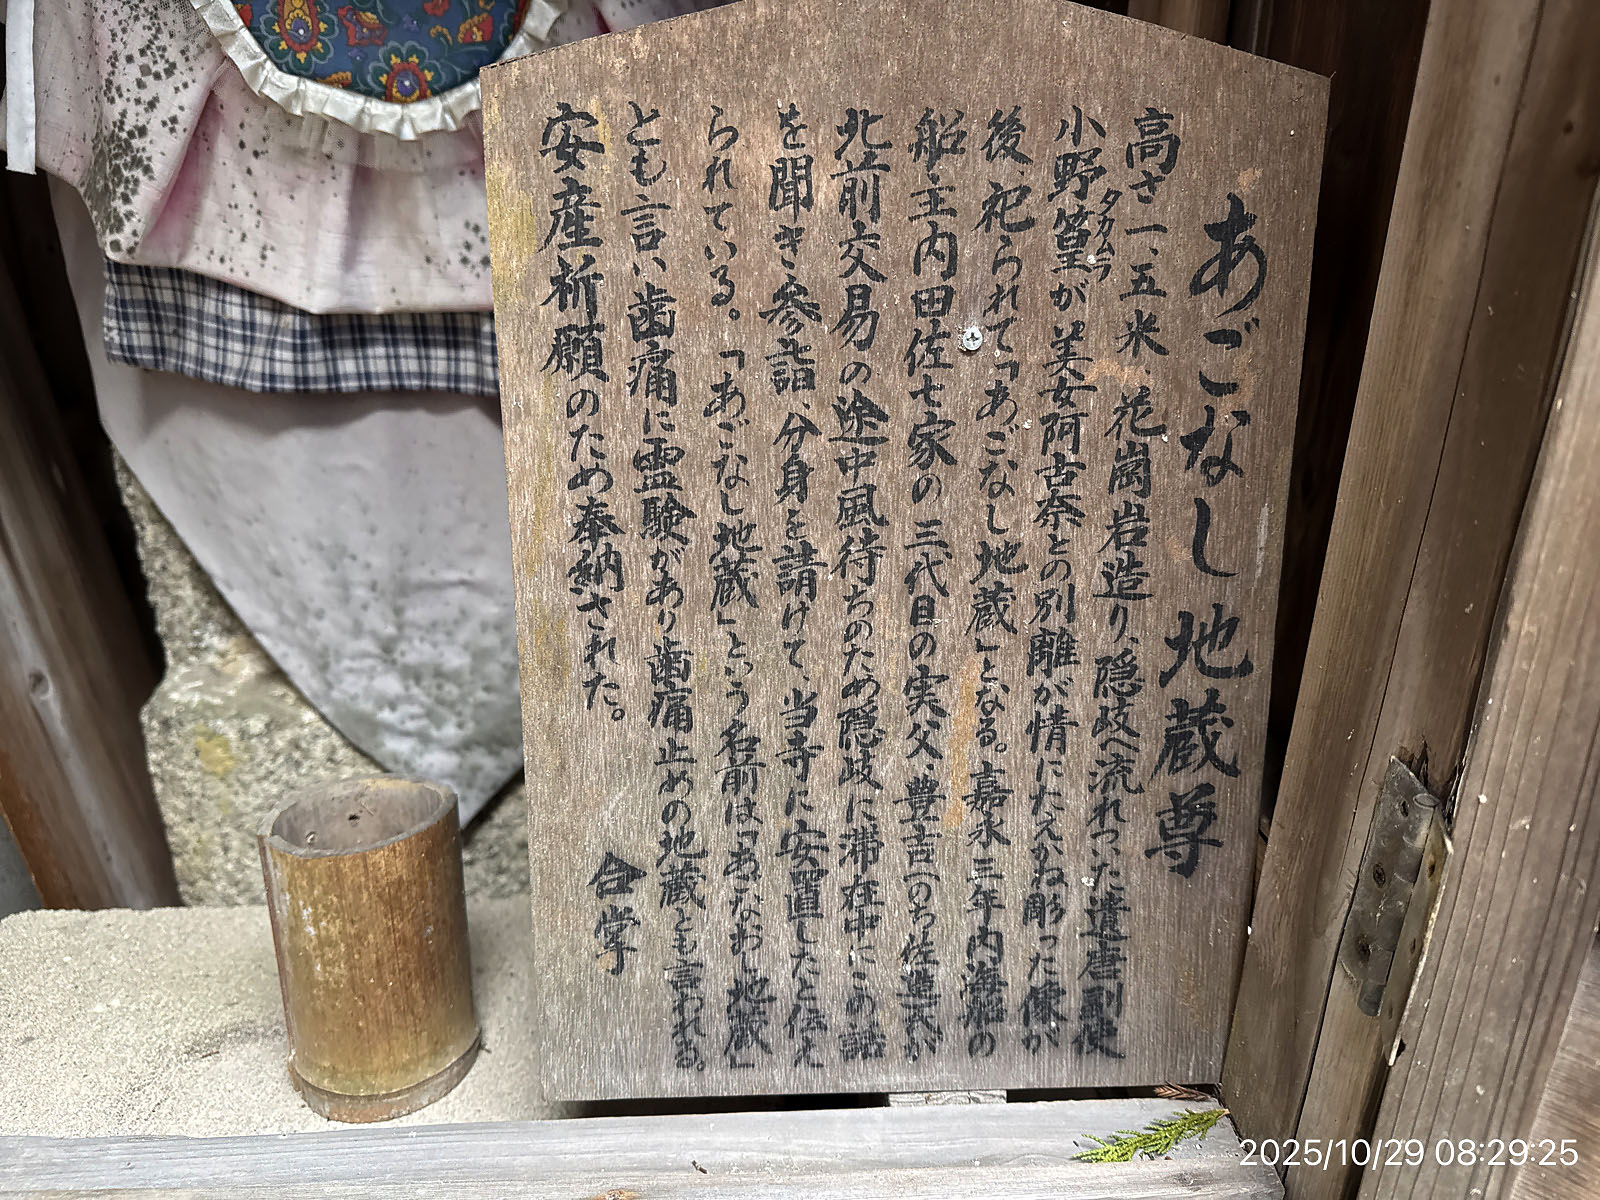 あごなし地蔵尊
高さ一、五米、花崗岩造り、隠岐へ流れつた遣唐副使
小野篁が美女阿古奈との別離が情にたえかね彫った像が
タカムラ
後、祀られて「あごなし地蔵」となる。嘉永三年内海船の
船主内田佐七家の三代目の実父、豊吉(のち佐造)が
北前交易の途中風待ちのため隠岐に滞在中にこの話
を聞き参詣、分身を請けて、当寺に安置したと伝え
られている。「あごなし地蔵」という名前は「あごなおし地蔵」
とも言い歯痛に霊験があり歯痛止めの地蔵とも言われる。
安産祈願のため奉納された。
合掌
2025/10/29 08:29:25